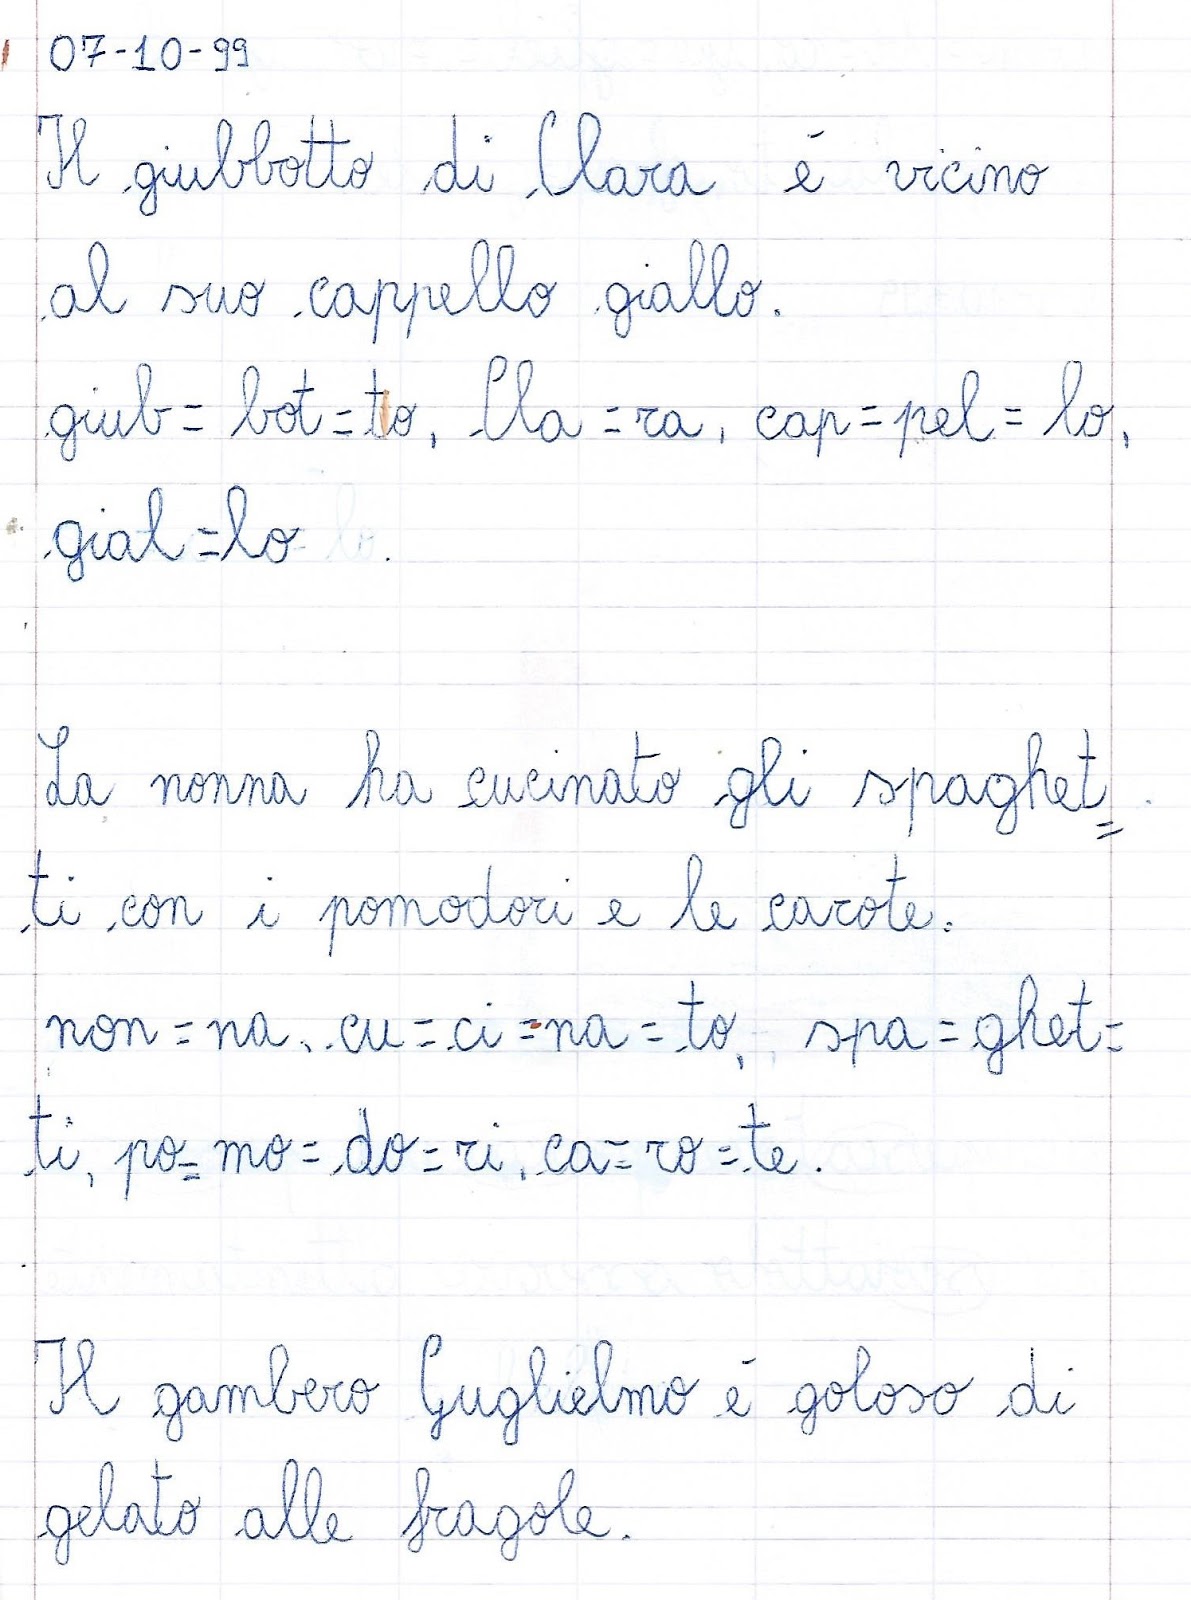 07-10-99
Il giubbotto di Clara é vicino
al suo cappello giallo.
giub=bot=to, Cla=ra, cap=pel=lo,
gial=lo.
La nonna ha cucinato gli spaghet=
ti con i pomodori e le carote.
non=na, cu=ci=na=to, spa=ghet=
ti, po=mo=do=ri, ca=ro=te.
Il gambero Guglielmo é goloso di
gelato alle fragole.